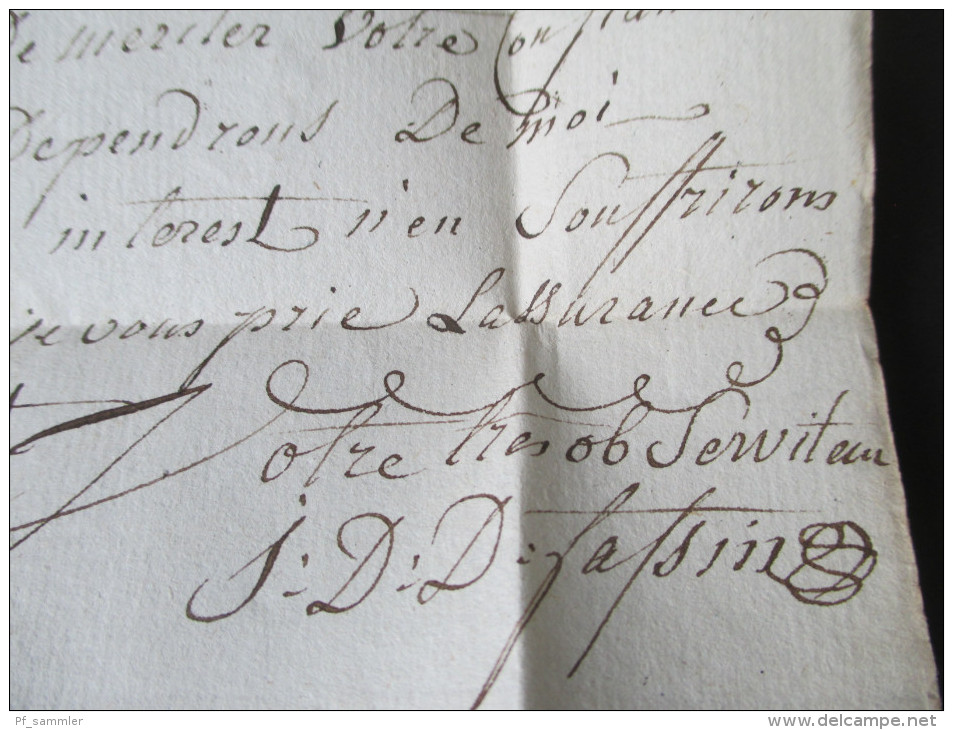 De meriter Votre
Dependrons De moi
interest n'en Souffrirons
je vous prie Lassurance
Votre tres ob Serviteur
J: D: D: Sassin
Pf_sammler
www.delcampe.net